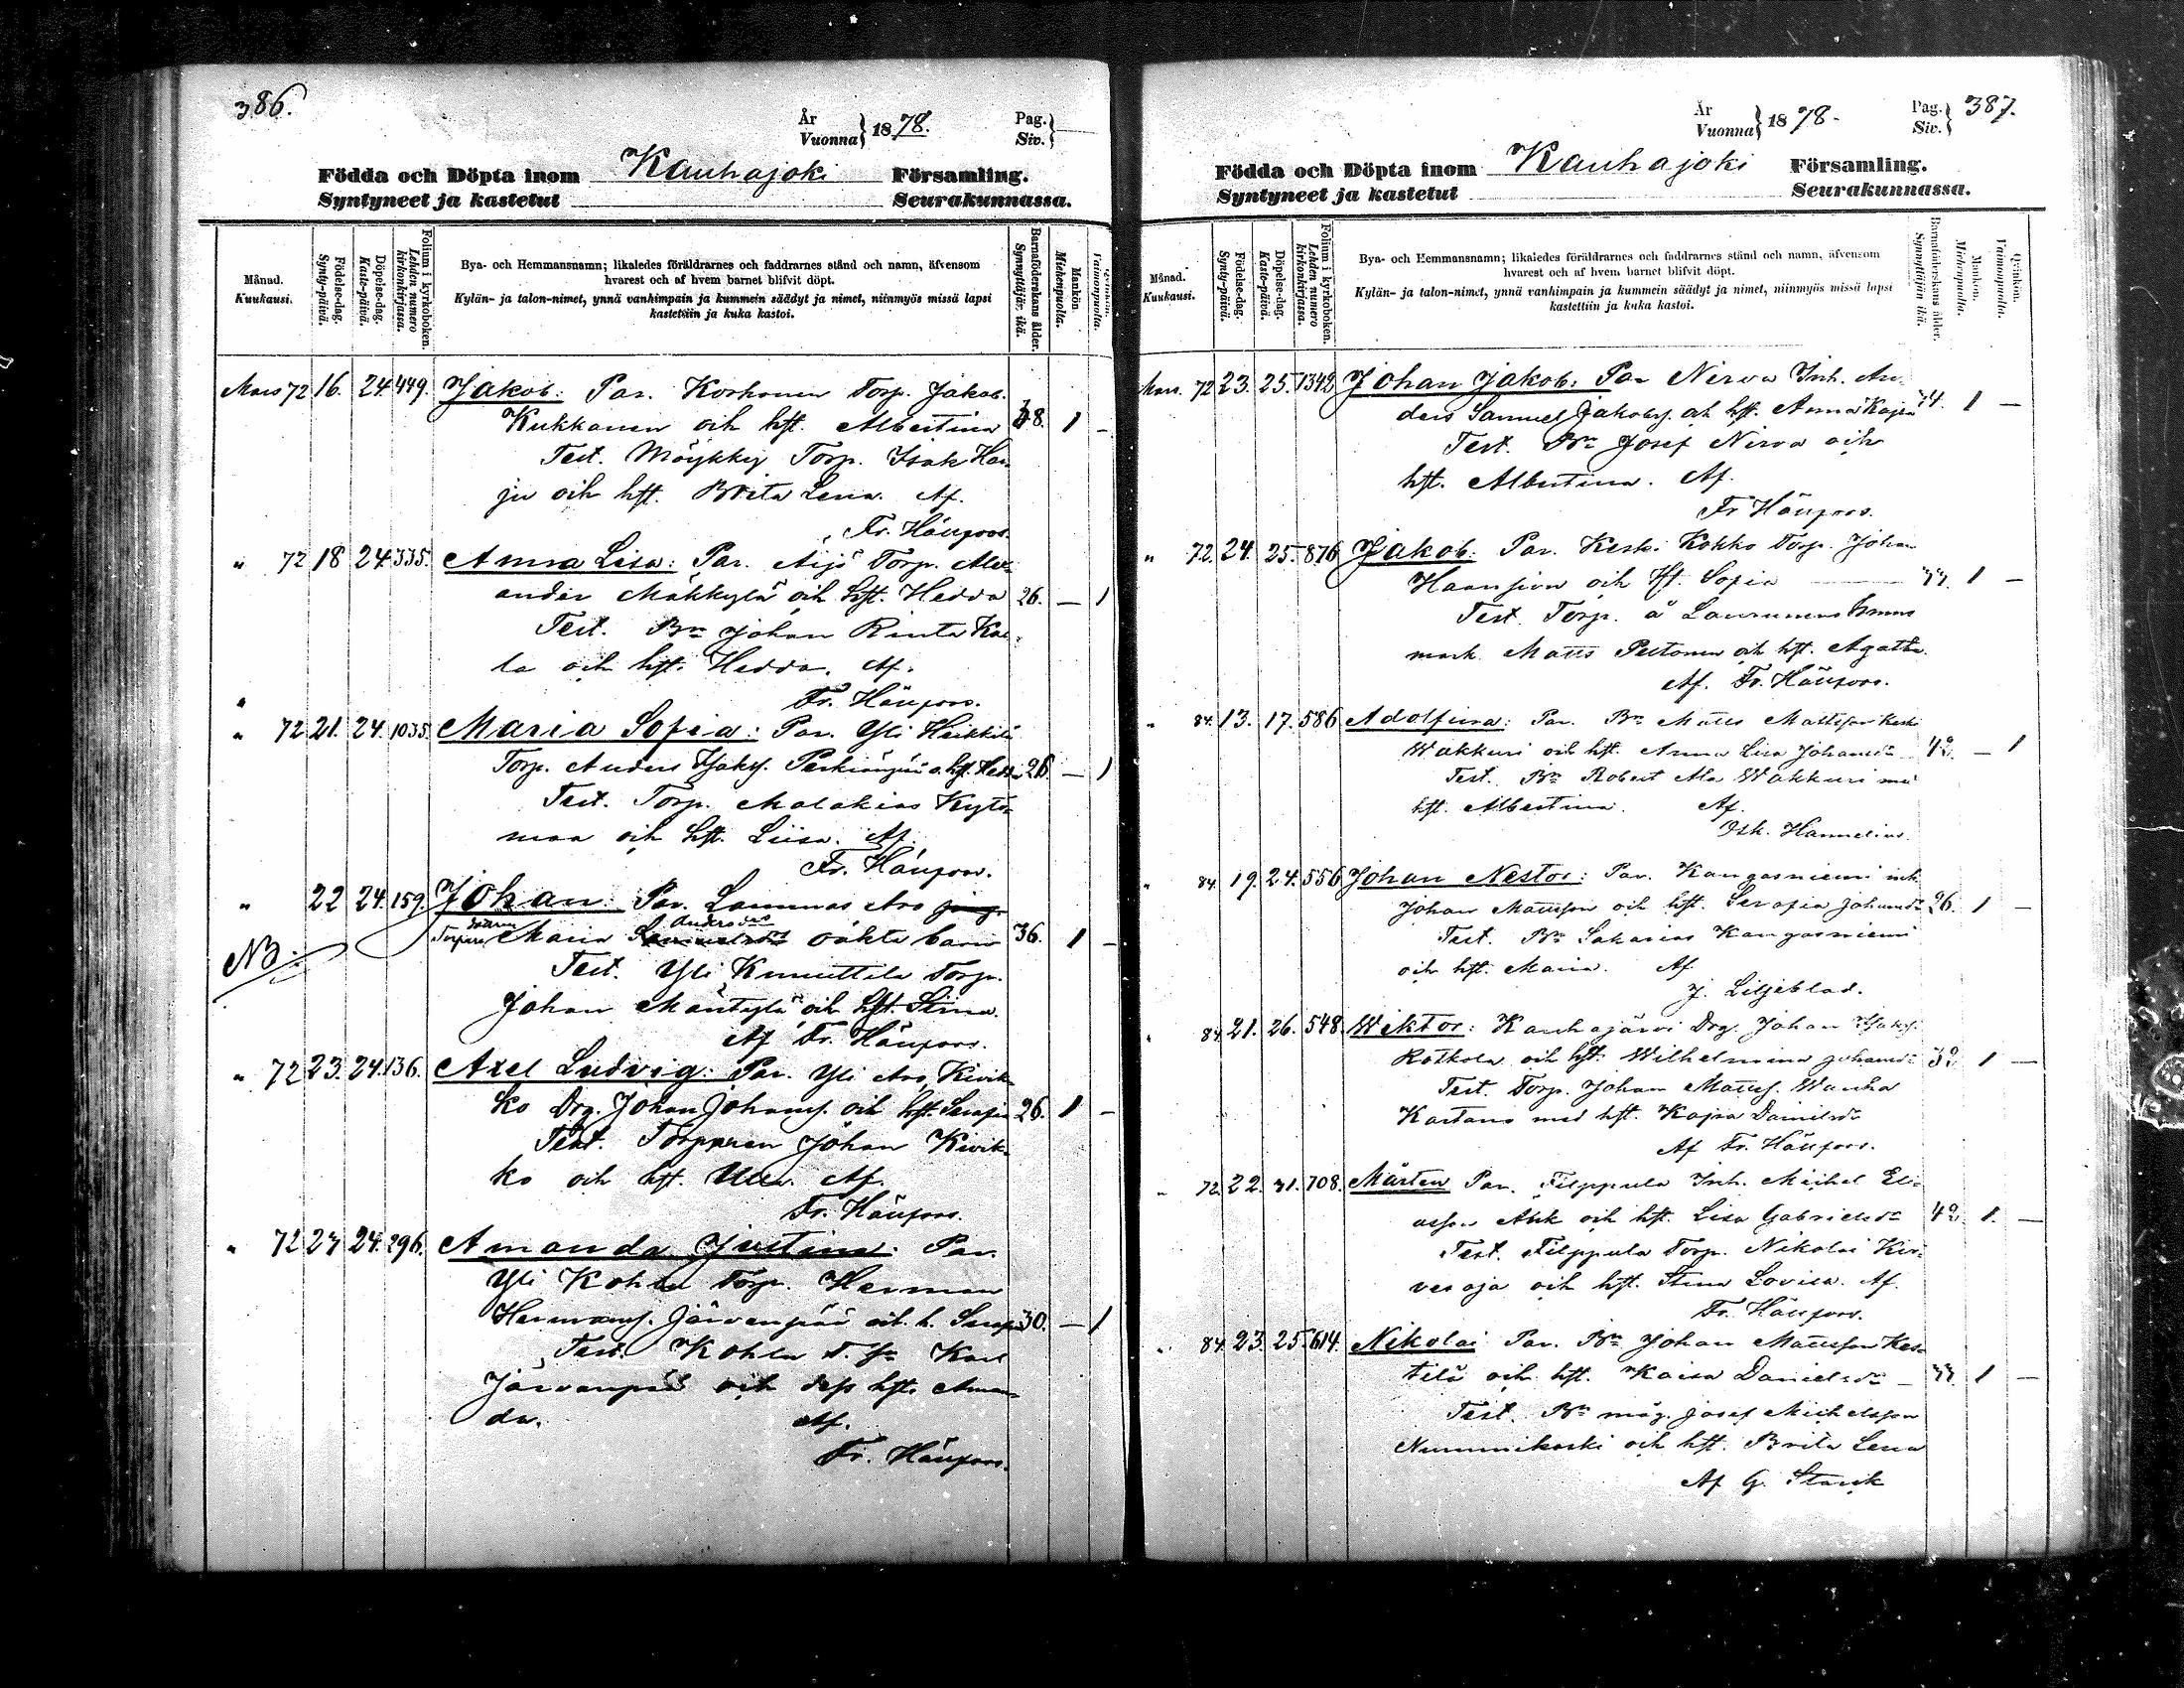 386.
År
Vuonna } 1878.
Pag.
Siv. }
Födda och Döpta inom Kauhajoki Församling.
Syntyneet ja kastetut Seurakunnassa.
Månad.
Kuukausi.
Födelse-dag.
Synty-päivä.
Döpelse-dag.
Kaste-päivä.
Folium i kyrkoboken.
Lehden numero kirkonkirjassa.
Bya- och Hemmansnamn; likaledes föräldrarnes och faddrarnes stånd och namn, äfvensom
hvarest och af hvem barnet blifvit döpt.
Kylän- ja talon-nimet, ynnä vanhimpain ja kummein säädyt ja nimet, niinmyös missä lapsi
kastettiin ja kuka kastoi.
Barnaföderskans ålder.
Synnyttäjän ikä.
Mankön.
Miehenpuolta.
Vaimonpuolta.
Mars 72 16. 24. 449. Jakob: Par. Korhonen Torp. Jakob.
Kukkanen och hst. Albertina 1 -
Test. Möykky Torp. Isak Har-
ju och hst. Brita Lena. Af.
Fr. Hänfors.
" 72 18 24. 335. Anna Lisa: Par. Äijö Torp. Alex-
ander Mäkkylä och hst. Hedda 26. - 1
Test. Bn Johan Rinta Kau-
la och hst. Hedda. Af.
Fr. Hänfors.
" 72 21. 24. 1035. Maria Sofia: Par. Yli Heikkilä
Torp. Anders Isaks. o. hst. Hedda 26 - 1
Test. Torp. Malakias Kytö-
maa och hst. Liisa. Af.
Fr. Hänfors.
" 22 24. 159. Johan: Par. Lammas Aro
Maria Andersdr oäkta barn 36. 1 -
NB:
Test. Yli Knuuttila Torp.
Johan Mäntylä och hst. Stina.
Af Fr. Hänfors.
" 72 23. 24. 136. Axel Ludvig: Par. Yli Aro Kivik-
ko Drg. Johan Johans. och hst. Serafia 26. 1 -
Test. Torpparen Johan Kivik-
ko och hst. Ulla. Af.
Fr. Hänfors.
" 72 23 24. 296. Amanda Justina: Par.
Yli Kohla Torp. Herman
Hermans. Järvenpää och h. Seraf. 30. - 1
Test. Kohla T. Sn Karl
Järvenpää och dess hst. Aman-
da. Af.
Fr. Hänfors.
År
Vuonna } 1878.
Pag.
Siv. } 387.
Födda och Döpta inom Kauhajoki Församling.
Syntyneet ja kastetut Seurakunnassa.
Månad.
Kuukausi.
Födelse-dag.
Synty-päivä.
Döpelse-dag.
Kaste-päivä.
Folium i kyrkoboken.
Lehden numero kirkonkirjassa.
Bya- och Hemmansnamn; likaledes föräldrarnes och faddrarnes stånd och namn, äfvensom
hvarest och af hvem barnet blifvit döpt.
Kylän- ja talon-nimet, ynnä vanhimpain ja kummein säädyt ja nimet, niinmyös missä lapsi
kastettiin ja kuka kastoi.
Barnaföderskans ålder.
Synnyttäjän ikä.
Mankön.
Miehenpuolta.
Qvinkön.
Vaimonpuolta.
Mars. 72 23. 25. 1342 Johan Jakob: Par Nirva Inh. An-
ders Samuel Jakobs. och hst. Anna Kajsa 1 -
Test. Bn Josef Nirva och
hst. Albertina. Af.
Fr Hänfors.
" 72. 24. 25. 876 Jakob: Par. Keski Kokko Torp. Johan
och hst. Sofia 1 -
Test. Torp. å
mark Matts Peltonen och hst. Agatha.
Af. Fr. Hänfors.
" 84. 13. 17. 586 Adolfina: Par. Bn Matts Mattsson Keski
Wakkuri och hst. Anna Lisa Johansdr 42. - 1
Test. Bn Robert Ala Wakkuri med
hst. Albertina. Af.
Osk. Hannelius.
" 84. 19. 24. 556 Johan Nestor: Par. Kangasniemi inh.
Johan Mattsson och hst. Serafia Johansdr 26. 1 -
Test. Bn Sakarias Kangasniemi
och hst. Maria. Af
J. Liljeblad.
" 84 21. 26. 548. Wiktor: Kauhajärvi Drg. Johan Isaks.
Kotkola och hst. Wilhelmina Johansdr 32 1 -
Test. Torp. Johan Matts. Wanha
Kartano med hst. Kajsa Danielsdr
Af Fr. Hänfors.
" 72. 22. 31. 708. Mårten Par. Filppula Inh. Michel Eli-
asson och hst. Lisa Gabrielsdr 42 1. -
Test. Filppula Torp. Nikolai Kir-
vesoja och hst. Stina Lovisa. Af
Fr. Hänfors.
" 84. 23. 25. 614. Nikolai Par. Bn Johan Mattsson Kes-
tilä och hst. Kaisa Danielsdr - 33. 1 -
Test. Bn måg. Josef Michelsson
Nummikoski och hst. Brita Lena
Af G. Starck